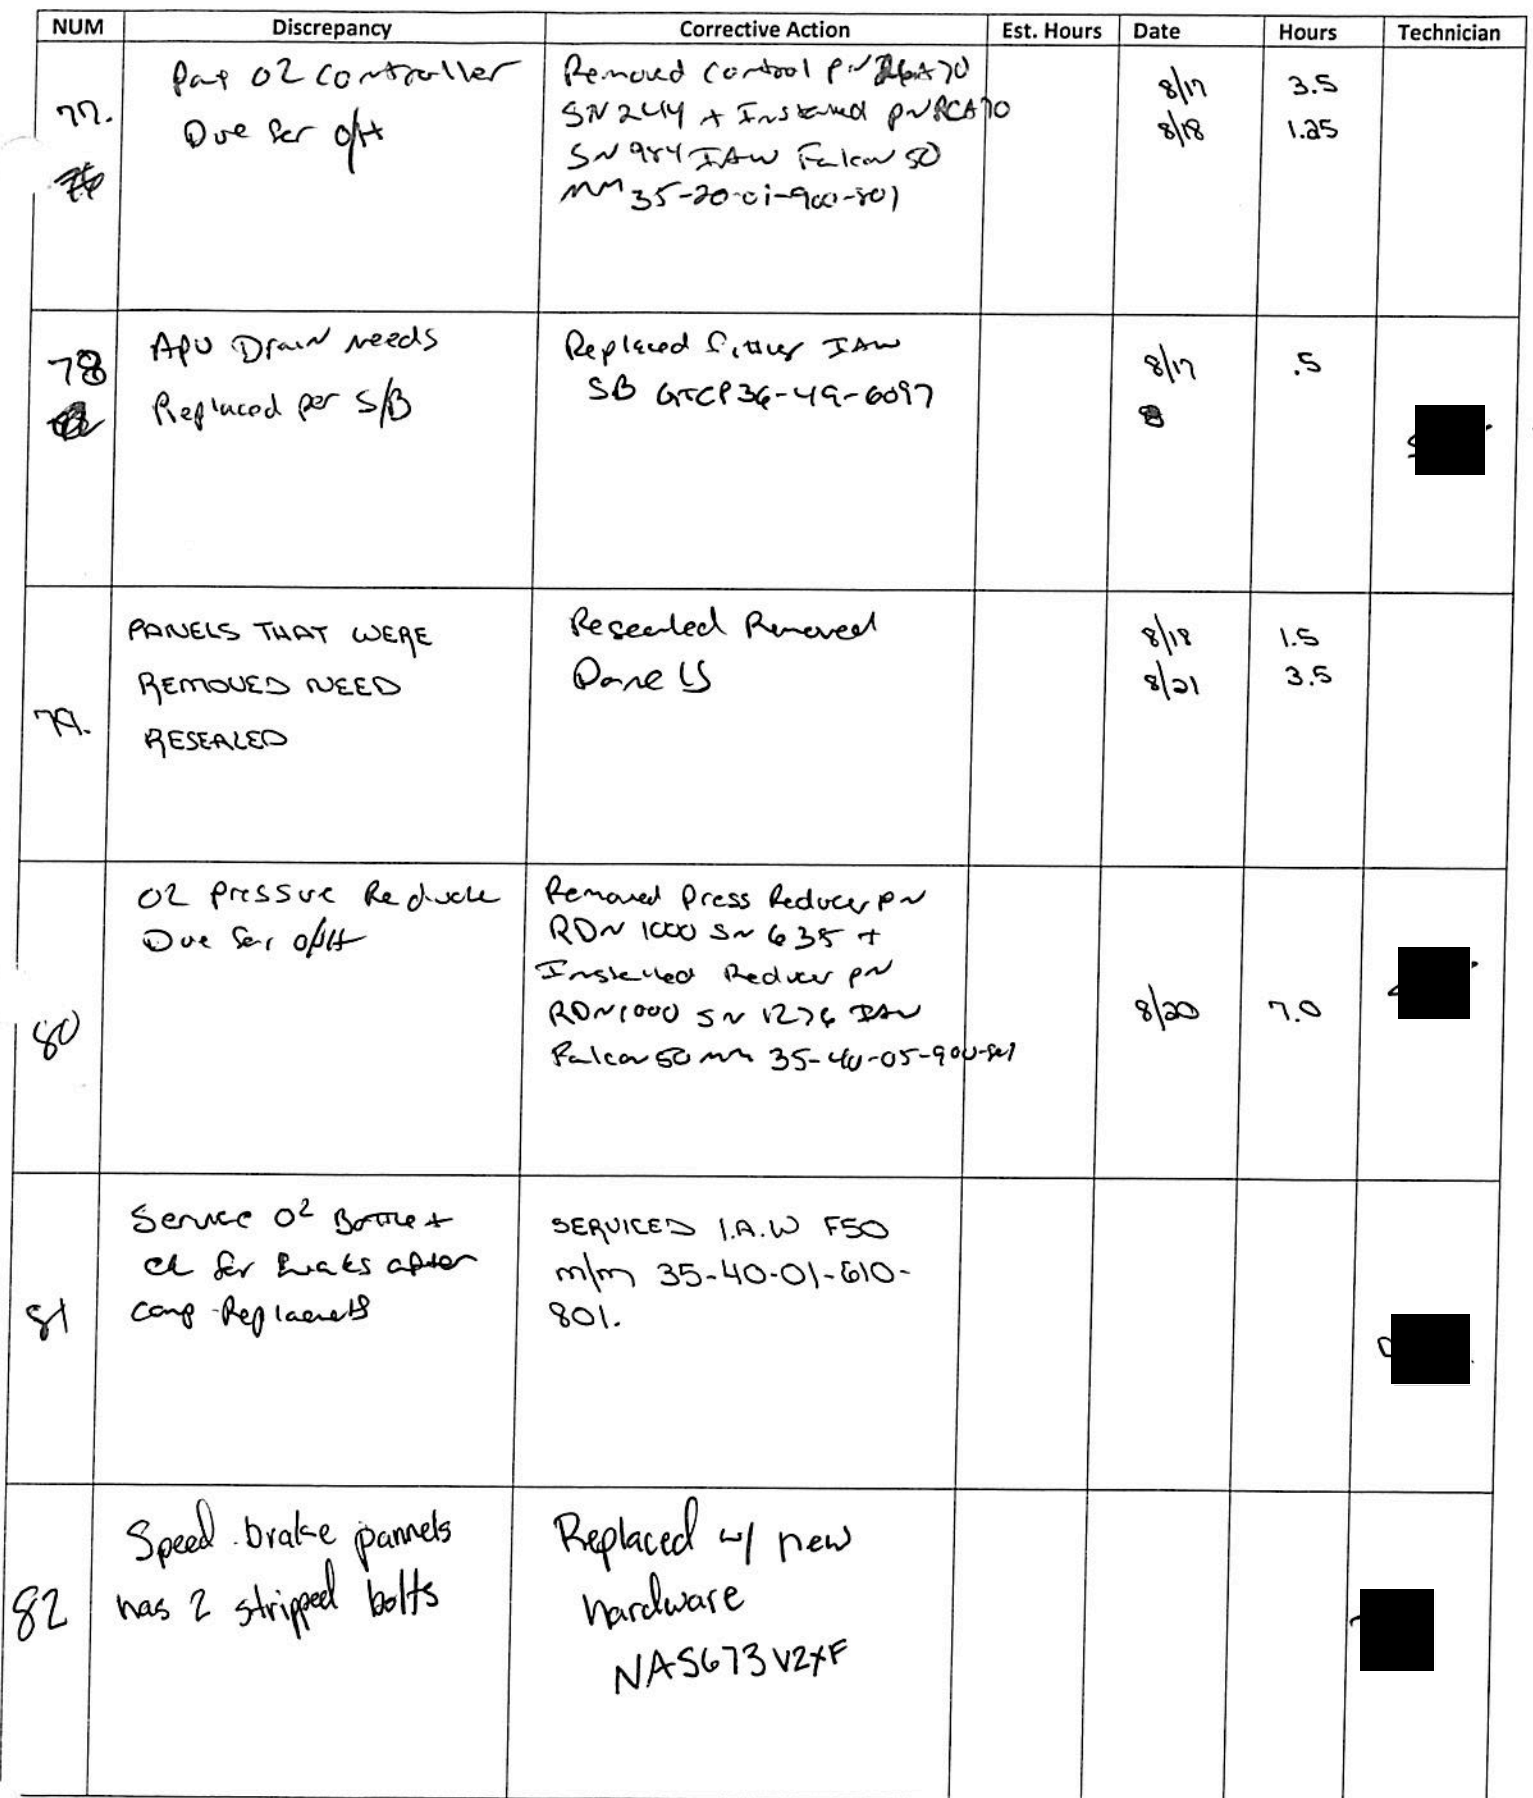 NUM Discrepancy Corrective Action Est. Hours Date Hours Technician
77.
Pax O2 Controller
Due for O/H
Removed Control PN
SN 244 + Installed PN RCA70
SN 984 IAW Falcon 50
MM 35-20-01-900-801
8/17 3.5
8/18 1.25
78
APU Drain needs
Replaced per S/B
Replaced fitting IAW
SB GTCP36-49-6097
8/17 .5
79.
PANELS THAT WERE
REMOVED NEED
RESEALED
Resealed Removed
Panels
8/18 1.5
8/21 3.5
80
O2 Pressure
Due for O/H
Removed Press Reducer PN
RDN 1000 SN 635 +
Installed Reducer PN
RDN1000 SN 1276 IAW
Falcon 50 MM 35-40-05-900-801
8/20 7.0
81
Service O2 Bottle +
ck for leaks after
comp
SERVICED I.A.W F50
m/m 35-40-01-610-
801.
82
Speed brake pannels
has 2 stripped bolts
Replaced w/ new
hardware
NAS673V2XF